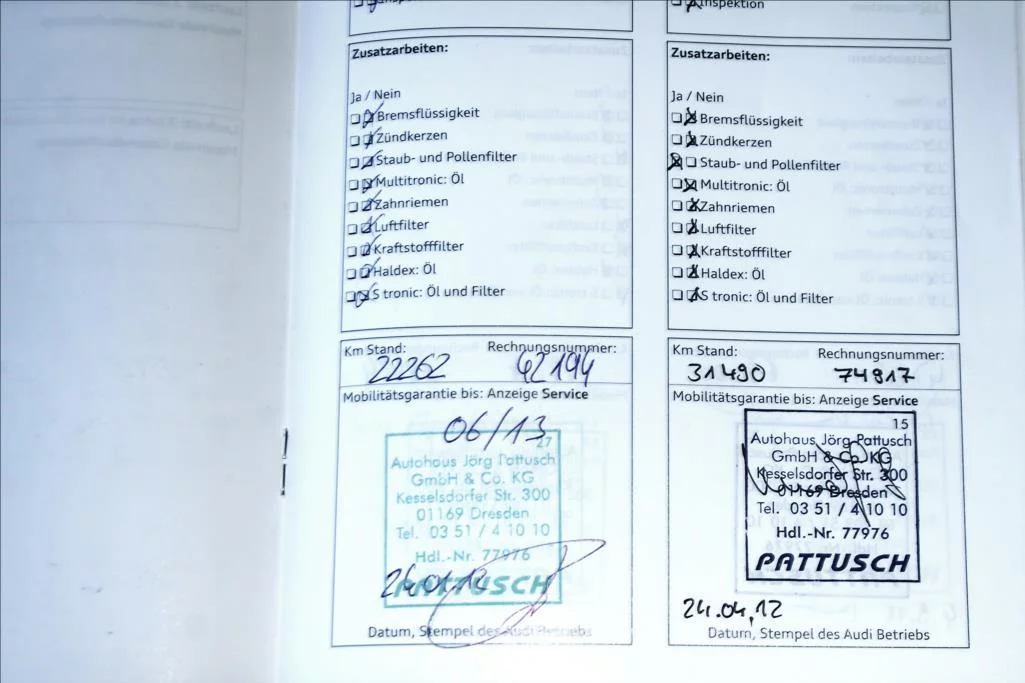 Inspektion
Zusatzarbeiten:
Ja / Nein
Bremsflüssigkeit
Zündkerzen
Staub- und Pollenfilter
Multitronic: Öl
Zahnriemen
Luftfilter
Kraftstofffilter
Haldex: Öl
S tronic: Öl und Filter
Km Stand: Rechnungsnummer:
22262 42194
Mobilitätsgarantie bis: Anzeige Service
06/13
27
Autohaus Jörg Pattusch
GmbH & Co. KG
Kesselsdorfer Str. 300
01169 Dresden
Tel. 03 51 / 4 10 10
Hdl.-Nr. 77976
PATTUSCH
24.01.12
Datum, Stempel des Audi Betriebs
Inspektion
Zusatzarbeiten:
Ja / Nein
Bremsflüssigkeit
Zündkerzen
Staub- und Pollenfilter
Multitronic: Öl
Zahnriemen
Luftfilter
Kraftstofffilter
Haldex: Öl
S tronic: Öl und Filter
Km Stand: Rechnungsnummer:
31490 74917
Mobilitätsgarantie bis: Anzeige Service
15
Autohaus Jörg Pattusch
GmbH & Co. KG
Kesselsdorfer Str. 300
01169 Dresden
Tel. 03 51 / 4 10 10
Hdl.-Nr. 77976
PATTUSCH
24.04.12
Datum, Stempel des Audi Betriebs